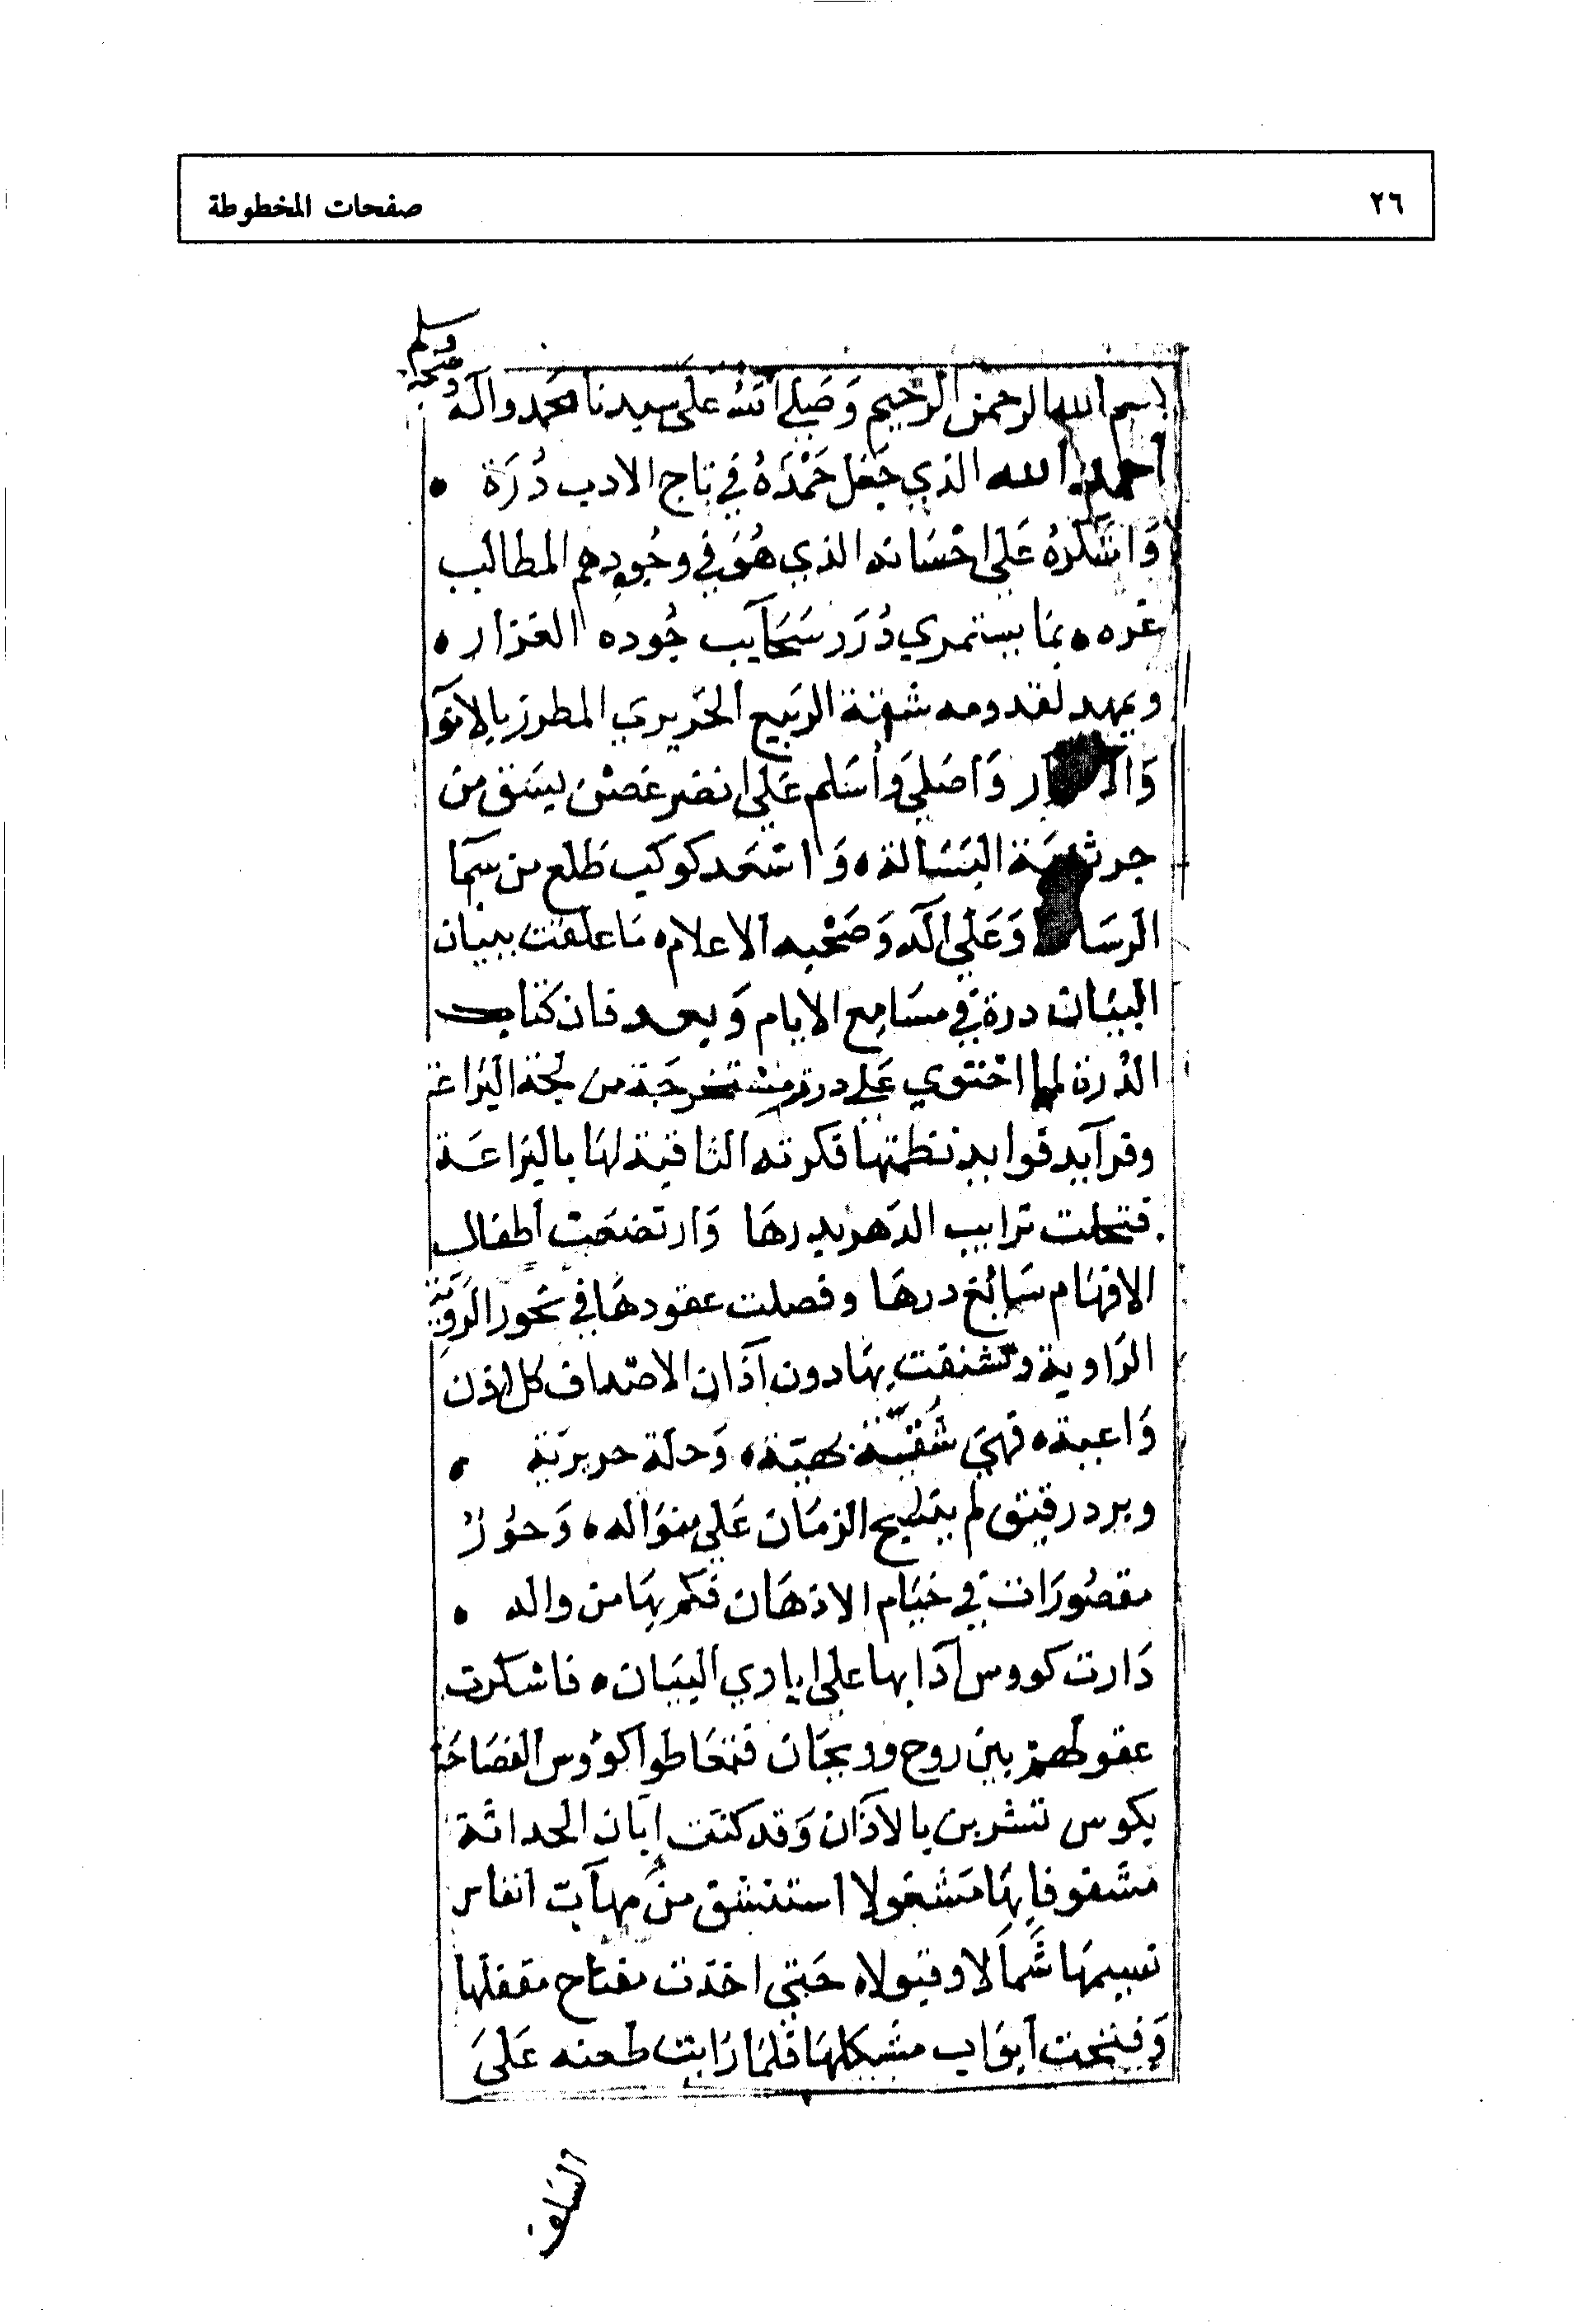 ٢٦
صفحات المخطوطة
وسلم
وصحبه
بسم الله الرحمن الرحيم وَصَلي الله عَلىَ سيدنا محَمد واله
أحمد الله الذي جَعَل حَمْدَهُ في تاج الادب دُرَة •
وَاشكرهُ عَلَي احْسَانه الذي هُوَ في وجُوه المطالب
غره • بمَا يستمري دُرَر سَحَايب جُوده الغزار •
ويمهد لقدومه شقة الربيع الحَريري المطرز بالانوَا
وَال ار وَاصَلي وأسَلم عَلَي انضر غصْن يسَق من
جرثومَة البَسَالة • وَاسْعَد كوكب طَلع من سَمَا
الرسَا وَعَلَي اله وَصَحْبه الاعلام • مَا علقت ببنان
البيَان درة في مسَامع الايام وَبعد فان كتاب
الدُرة لما احْتوي عَلي درر مسْتخرجَة من لجَة اليَرَاعة
وفرآيد فوايد نظمتها فكرته الثاقبة لهَا باليَرَاعَة
فتحلت ترايب الدَهر بدرهَا وَارتضعَت أطفال
الافهَام سَايغ درهَا وفصلت عقودهَا في نحور الرَوية
الرَاوية وتشنفت بهَا دون آذان الاصْداف كل اذن
وَاعية • فهيَ شقة بهيَة • وَحلَة حريريَة •
وبرد رقيق لم ينسج الزمَان عَلَي منوَاله • وَحوُر
مقصُورَات في خيَام الاذهَان فكم بهَا من واله •
دَارت كووس آدَابها علي ايادي البيَان • فاسْكرت
عقولهم بين روح وريحَان فتعَاطوا كؤوس الفصَاحَة
بكوس تشربن بالآذَان وَقد كنت إبَان الحدَاثة
مشَغوفا بهَا مَشْغولا استنشق من مهآبّ انفاس
نسيمهَا شَمآلا وقبولا • حَتي اخذت مفتاح مقفلها
وَفتحت أبوَاب مشكلهَا فلما رَايت طعنه عَلَيَ